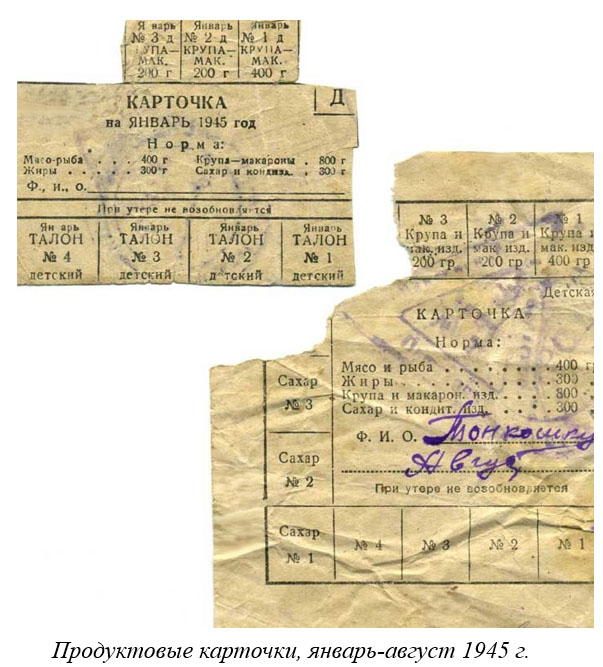 Январь Январь Январь
№ 3 д № 2 д № 1 д
КРУПА— КРУПА— КРУПА—
МАК. МАК. МАК.
200 г 200 г 400 г
КАРТОЧКА Д
на ЯНВАРЬ 1945 год
Норма:
Мясо-рыба . . . 400 г Крупа—макароны . 800 г
Жиры . . . . . 300 г Сахар и кондизд. . 300 г
Ф., и., о.
При утере не возобновляется
Январь Январь Январь Январь
ТАЛОН ТАЛОН ТАЛОН ТАЛОН
№ 4 № 3 № 2 № 1
детский детский детский детский
№ 3 № 2 № 1
Крупа и Крупа и Крупа и
мак. изд. мак. изд. мак. изд.
200 гр 200 гр 400 гр
Детская
КАРТОЧКА
Норма:
Мясо и рыба . . . . . 400 гр
Жиры . . . . . . . . 300
Крупа и макарон. изд. . . . 800
Сахар и кондит. изд. . . . . 300
Ф. И. О. Тонкошку
Август
При утере не возобновляется
Сахар
№ 3
Сахар
№ 2
Сахар
№ 1 № 4 № 3 № 2 № 1
Продуктовые карточки, январь-август 1945 г.